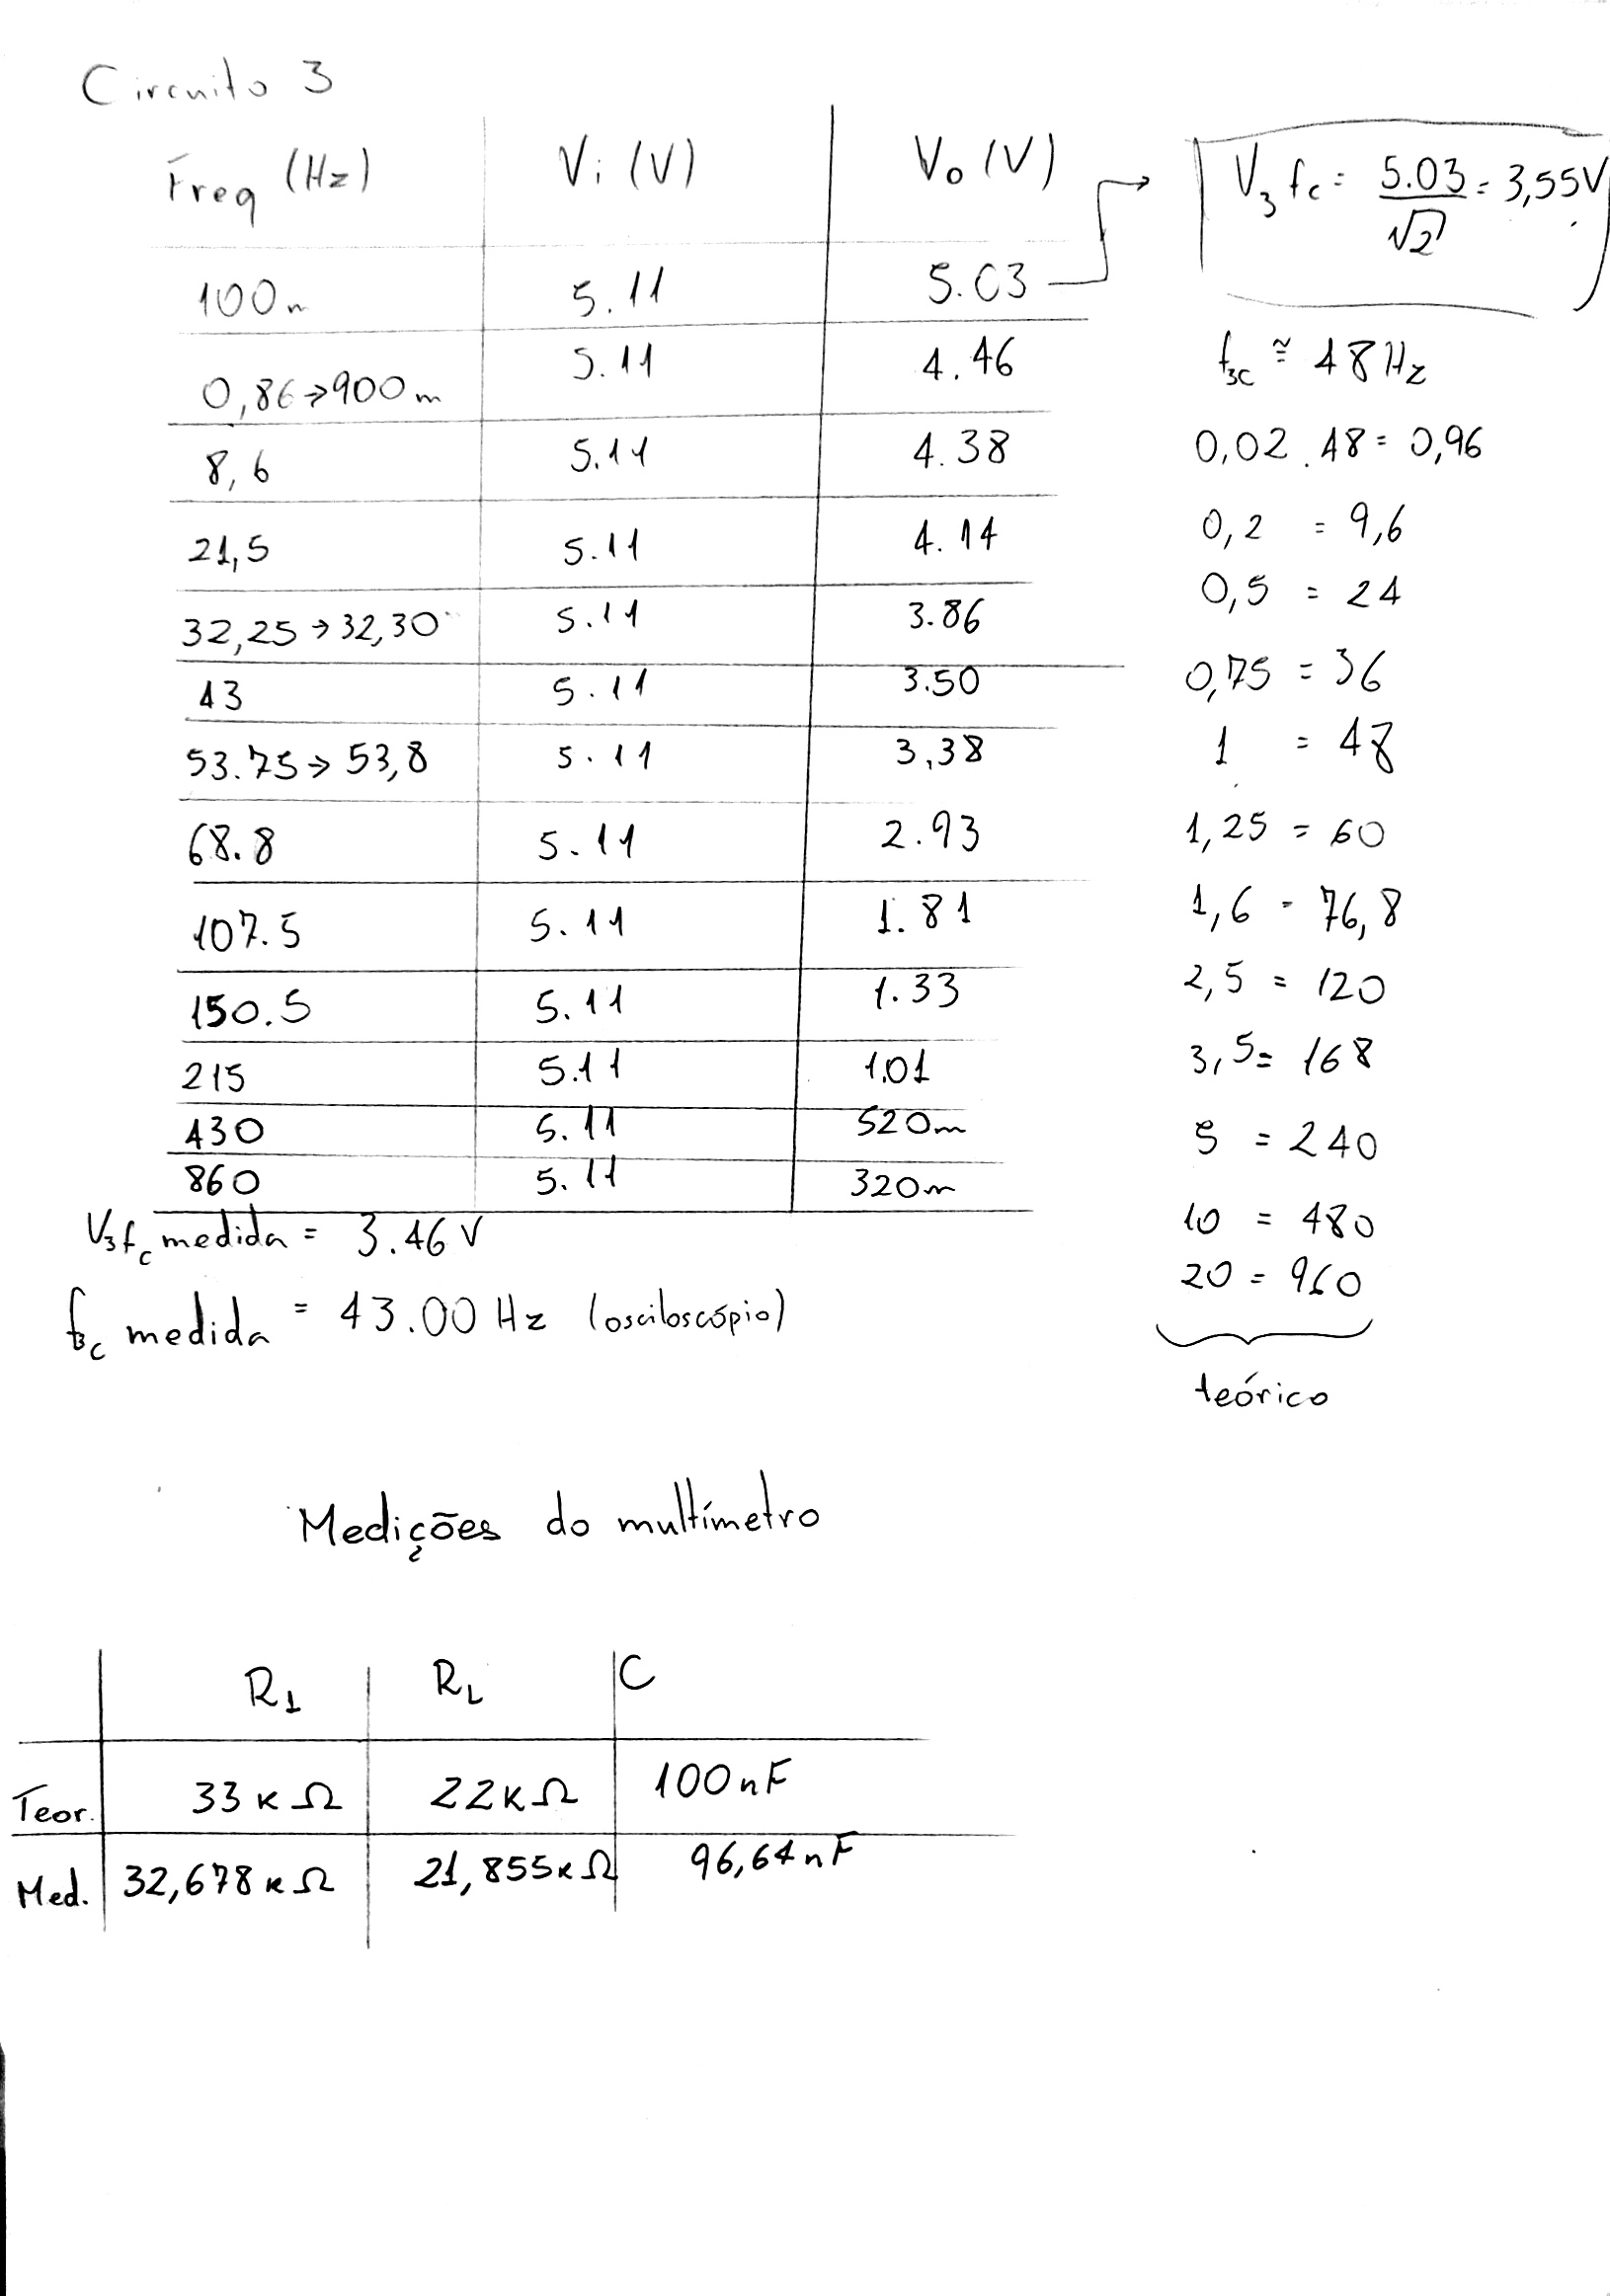 Circuito 3
Freq (Hz) Vi (V) Vo (V)
100m 5.11 5.03
0,86→900m 5.11 4.46
8,6 5.11 4.38
21,5 5.11 4.14
32,25→32,30 5.11 3.86
43 5.11 3.50
53.75→53,8 5.11 3,38
68.8 5.11 2.93
107.5 5.11 1.81
150.5 5.11 1.33
215 5.11 1.01
430 5.11 520m
860 5.11 320m
V3fc medida = 3.46 V
f3c medida = 43.00 Hz (osciloscópio)
V3fc = 5.03/√2 = 3,55V
f3c ≅ 48Hz
0,02 . 48 = 0,96
0,2 = 9,6
0,5 = 24
0,75 = 36
1 = 48
1,25 = 60
1,6 - 76,8
2,5 = 120
3,5 = 168
5 = 240
10 = 480
20 = 960
teórico
Medições do multímetro
R1 RL C
Teor. 33kΩ 22kΩ 100nF
Med. 32,678kΩ 21,855kΩ 96,64nF